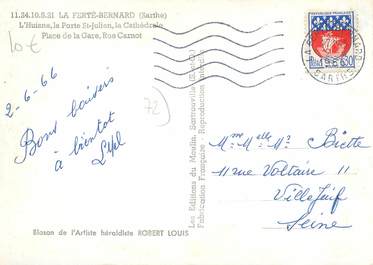 11.24.10.8.21 LA FERTÉ-BERNARD (Sarthe)
L'Huisne, la Porte St-Julien, la Cathédrale
Place de la Gare, Rue Carnot
10€
2-6-66
Bons baisers
à bientôt
72
Les Editions du Moulin, Sartrouville (S.-et-O.)
Fabrication Française - Reproduction Interdite
REPUBLIQUE FRANÇAISE
PARIS 0,30
LA FERTE BERNARD
SARTHE
Mme Melle Mr Biette
11 rue Voltaire 11
Villejuif
Seine
Blason de l'Artiste héraldiste ROBERT LOUIS